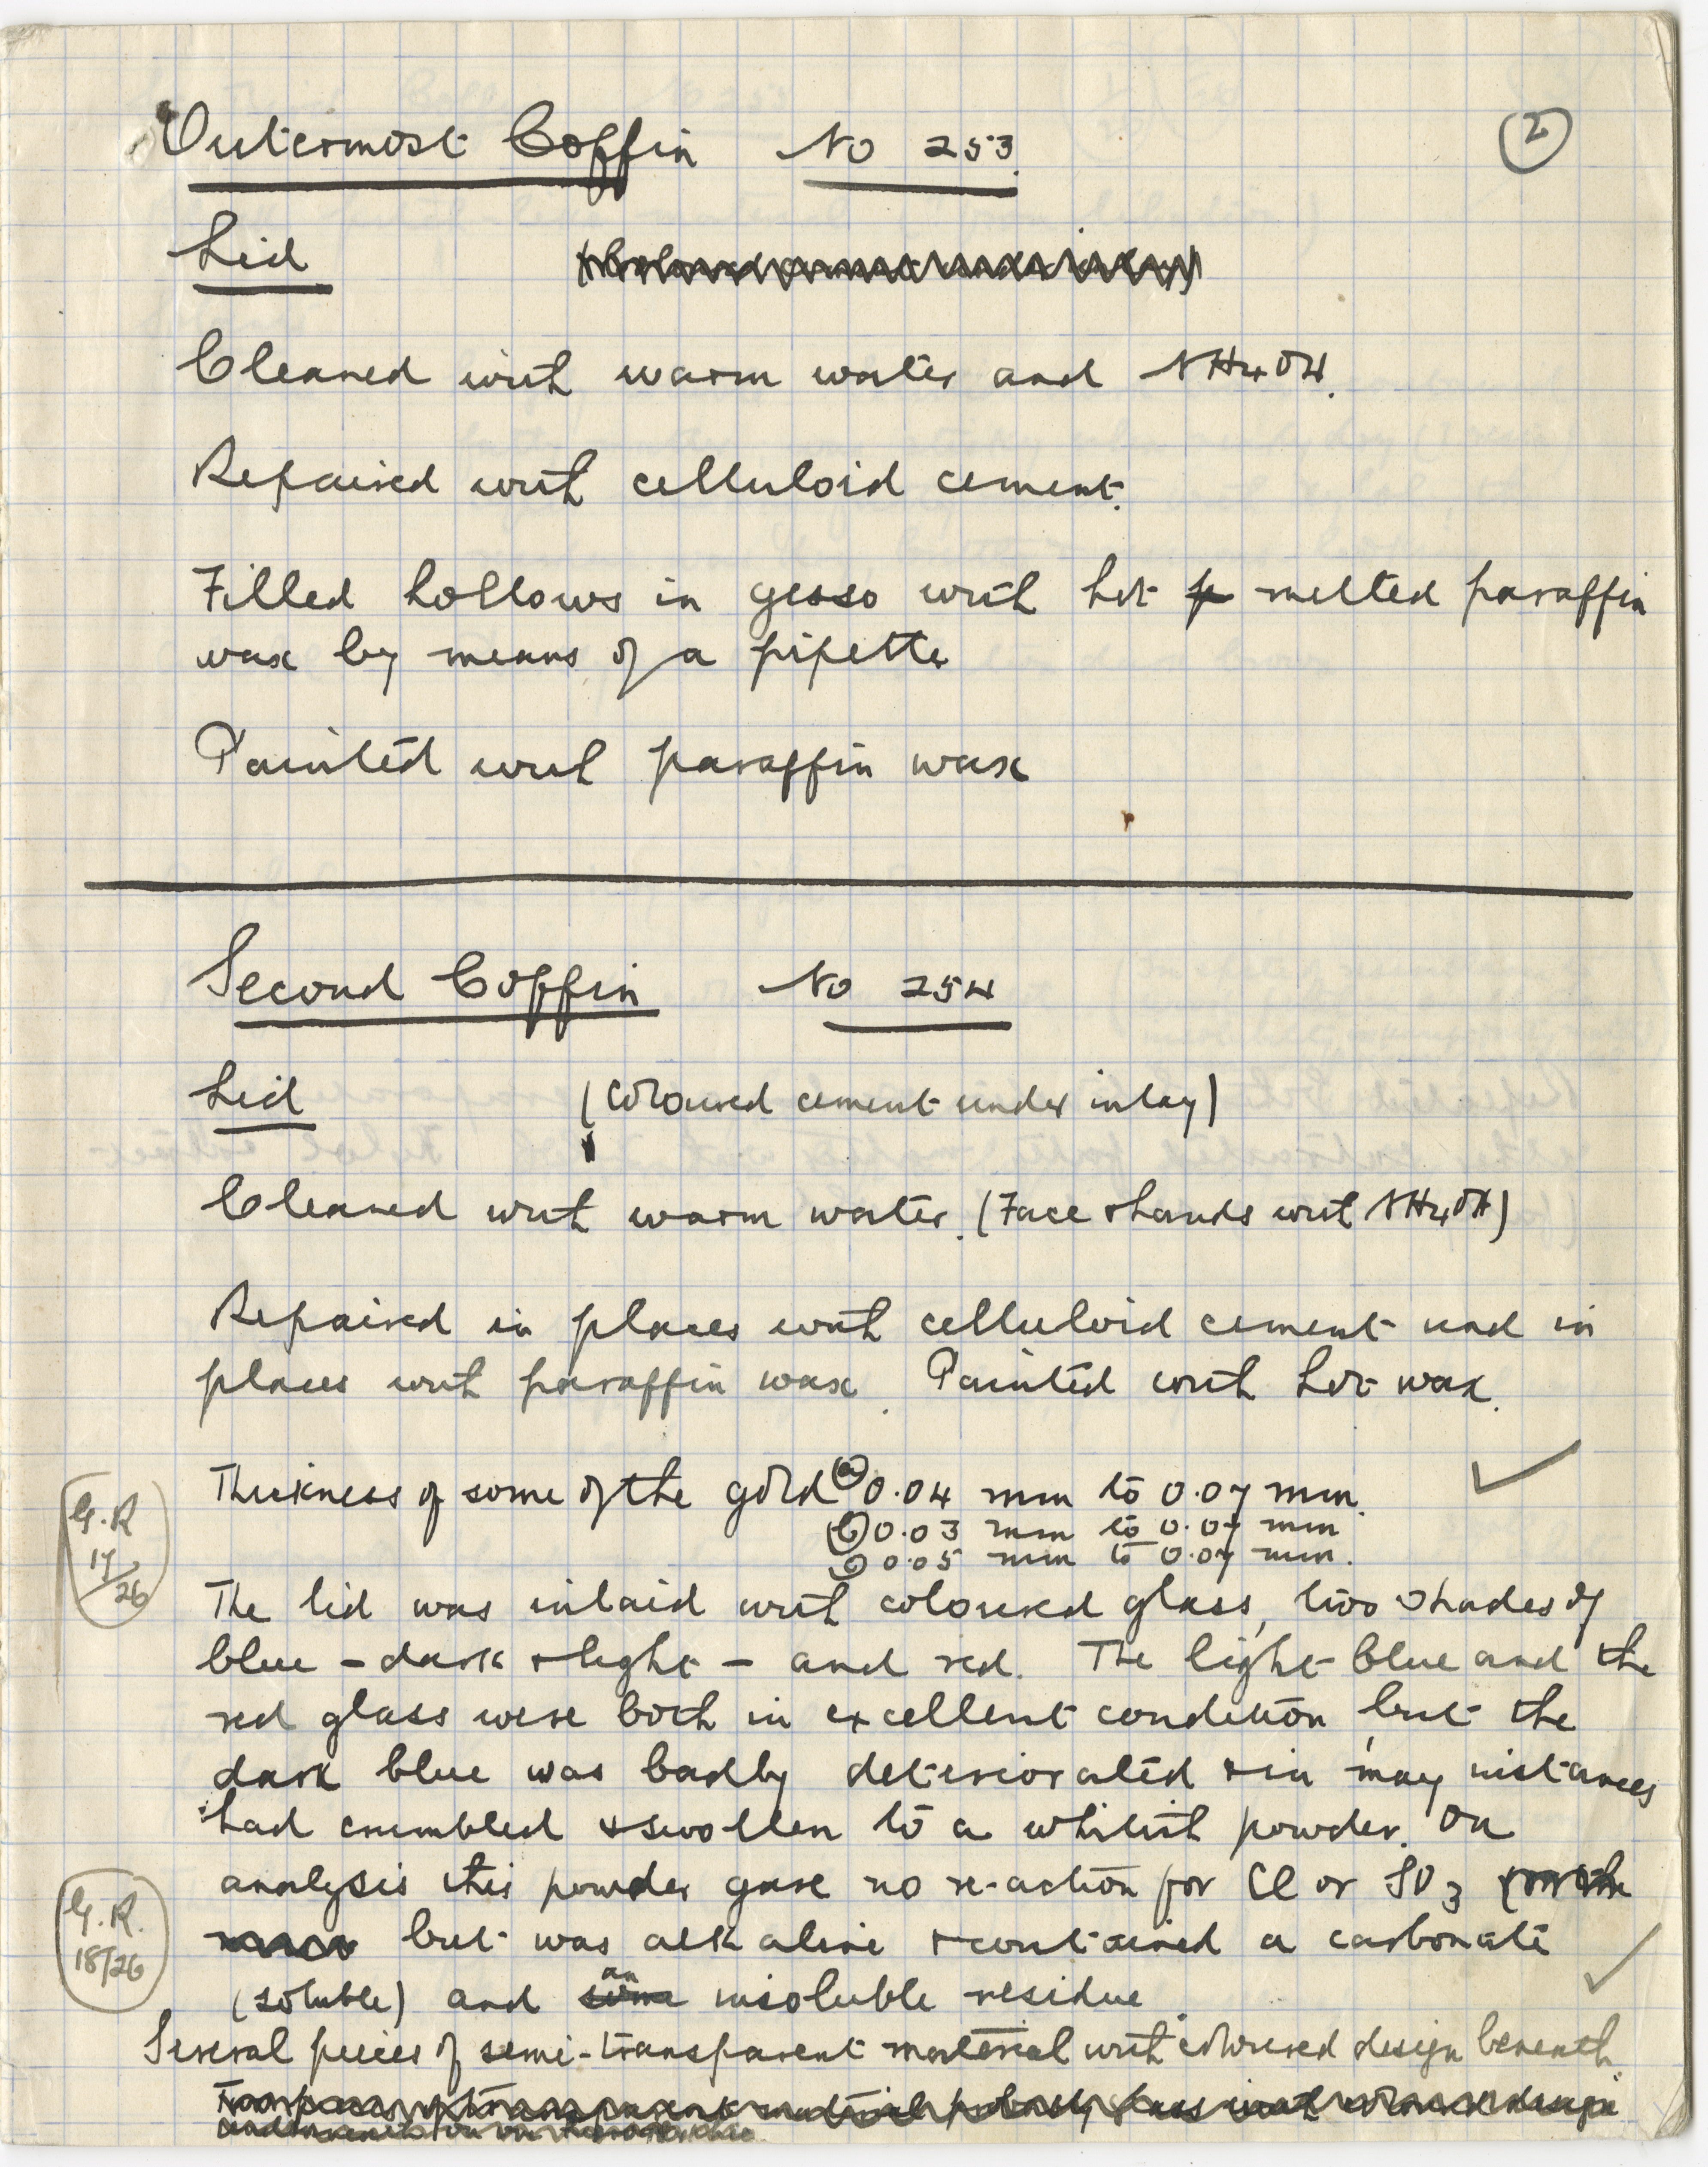 Outermost Coffin No 253.
2
Lid
Cleaned with warm water and NH4OH.
Repaired with celluloid cement.
Filled hollows in gesso with hot melted paraffin
wax by means of a pipette
Painted with paraffin wax
Second Coffin No 254
Lid (Coloured cement under inlay)
Cleaned with warm water. (Face & hands with NH4OH)
Repaired in places with celluloid cement and in
places with paraffin wax. Painted with hot wax.
Thickness of some of the gold (a) 0.04 mm to 0.07 mm.
(b) 0.03 mm to 0.07 mm
(c) 0.05 mm to 0.07 mm.
G.R
17/26
The lid was inlaid with coloured glass, two shades of
blue - dark & light - and red. The light blue and the
red glass were both in excellent condition, but the
dark blue was badly deteriorated & in many instances
had crumbled & swollen to a whitish powder. On
analysis this powder gave no re-action for Cl or SO3
but was alkaline & contained a carbonate
G.R.
18/26
(soluble) and some an insoluble residue.
Several pieces of semi-transparent material with coloured design beneath.